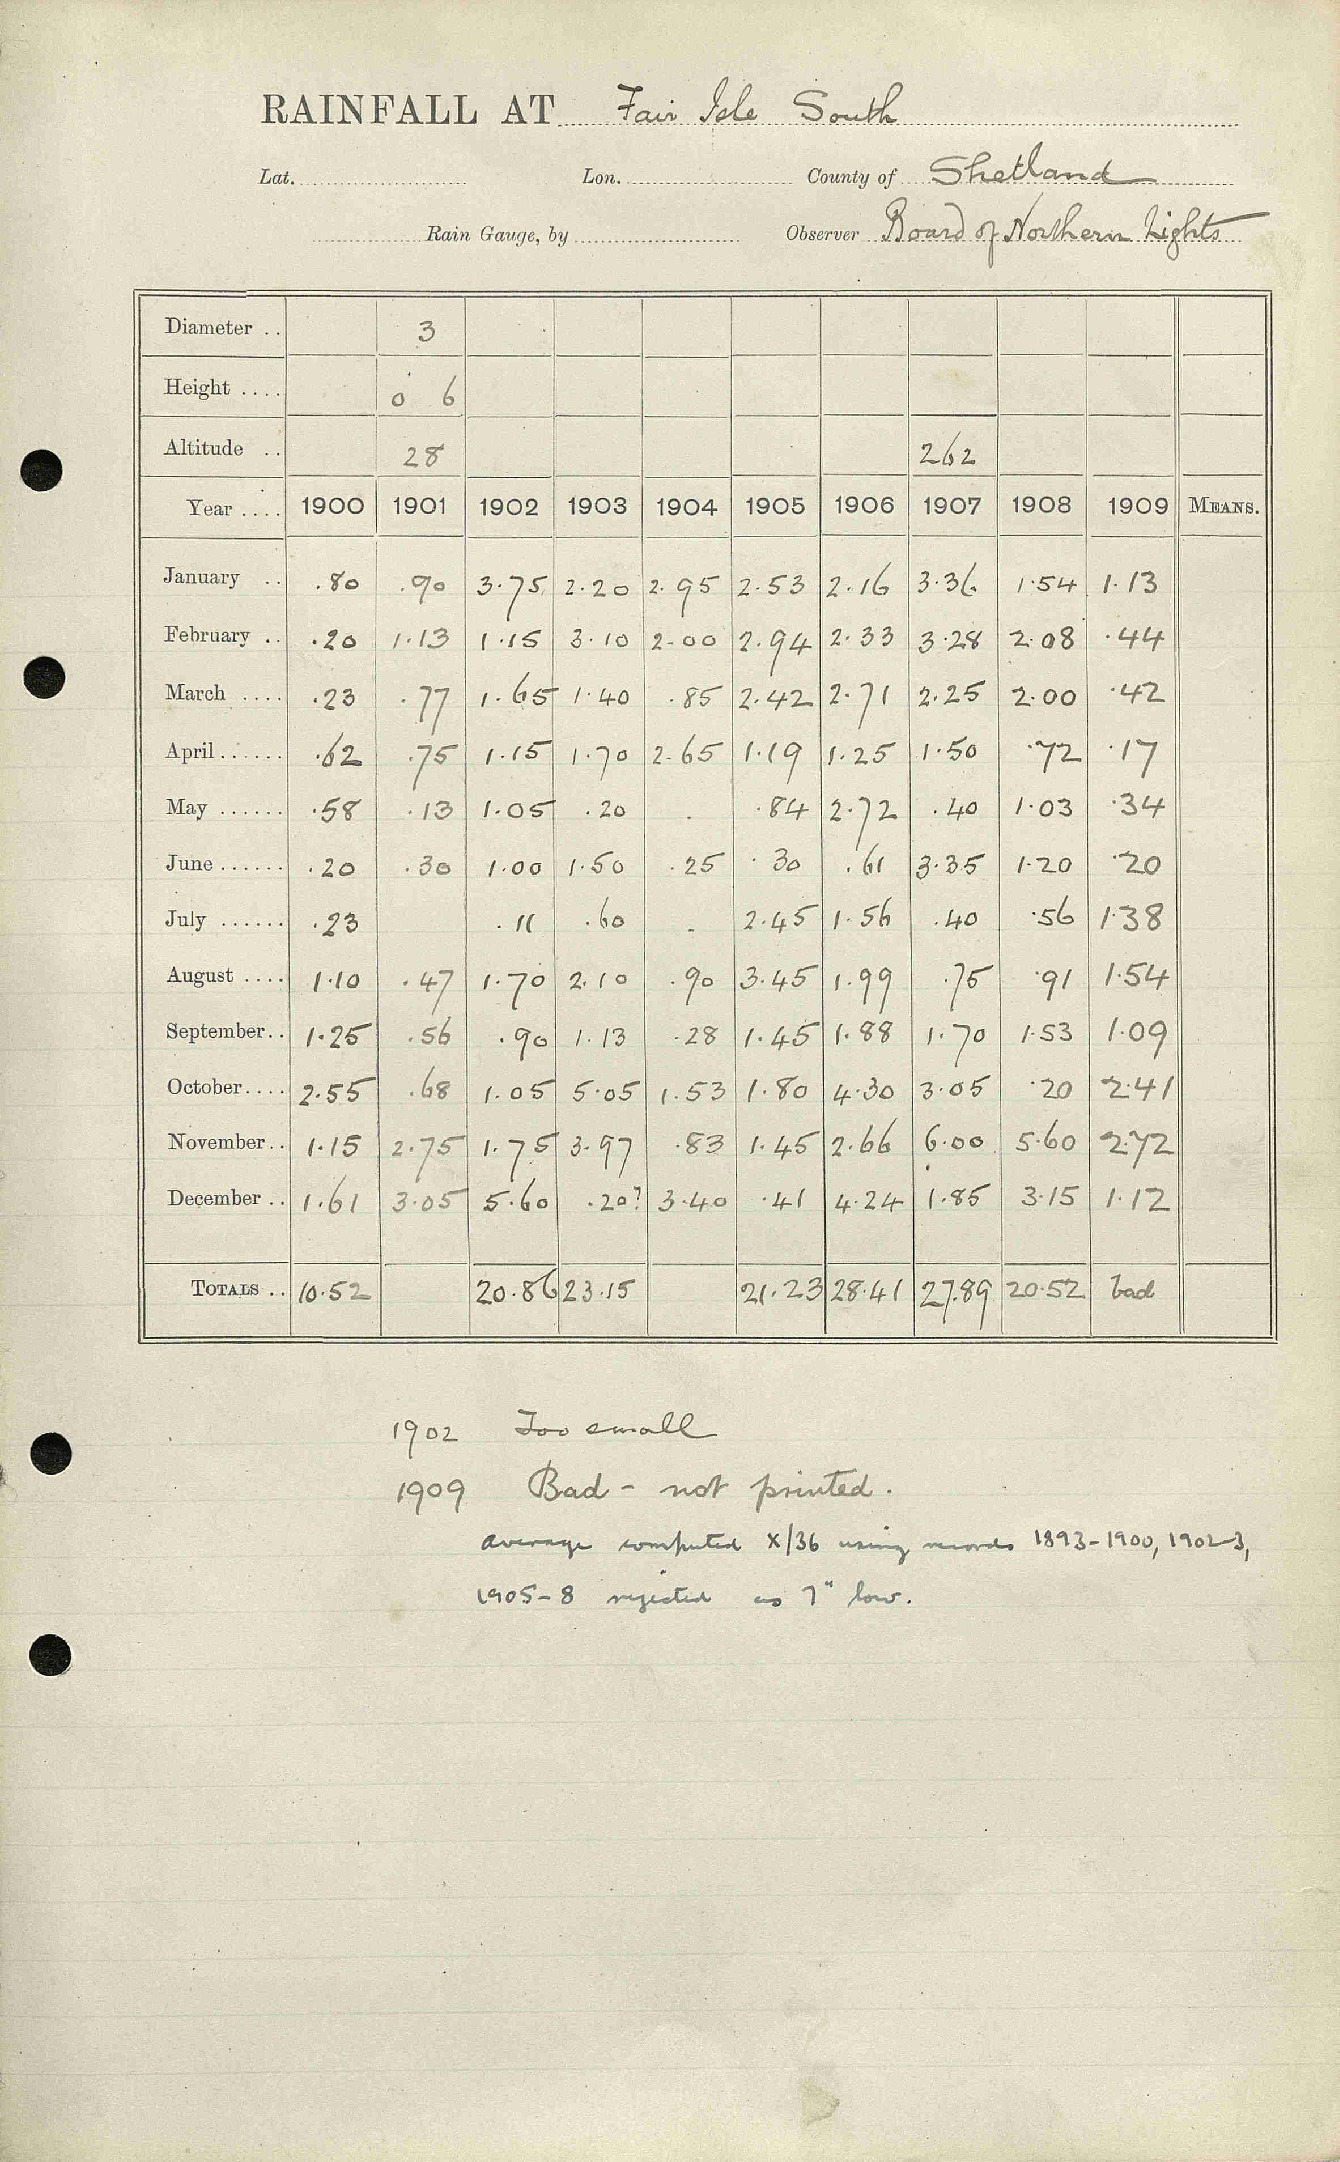 RAINFALL AT Fair Isle South
Lat. Lon. County of Shetland
Rain Gauge, by Observer Board of Northern Lights
Diameter .. 3
Height .... 0 6
Altitude .. 28 262
Year .... 1900 1901 1902 1903 1904 1905 1906 1907 1908 1909 MEANS.
January .. .80 .90 3.75 2.20 2.95 2.53 2.16 3.36 1.54 1.13
February .. .20 1.13 1.15 3.10 2.00 2.94 2.33 3.28 2.08 .44
March .... .23 .77 1.65 1.40 .85 2.42 2.71 2.25 2.00 .42
April ...... .62 .75 1.15 1.70 2.65 1.19 1.25 1.50 .72 .17
May ...... .58 .13 1.05 .20 . .84 2.72 .40 1.03 .34
June ...... .20 .30 1.00 1.50 .25 .30 .61 3.35 1.20 .20
July ...... .23 .11 .60 . 2.45 1.56 .40 .56 1.38
August .... 1.10 .47 1.70 2.10 .90 3.45 1.99 .75 .91 1.54
September.. 1.25 .56 .90 1.13 .28 1.45 1.88 1.70 1.53 1.09
October.... 2.55 .68 1.05 5.05 1.53 1.80 4.30 3.05 .20 2.41
November.. 1.15 2.75 1.75 3.97 .83 1.45 2.66 6.00 5.60 2.72
December .. 1.61 3.05 5.60 .20? 3.40 .41 4.24 1.85 3.15 1.12
TOTALS .. 10.52 20.86 23.15 21.23 28.41 27.89 20.52 bad
1902 Too small
1909 Bad - not printed.
Average computed X/36 using records 1893-1900, 1902-3,
1905-8 rejected as 7" low.